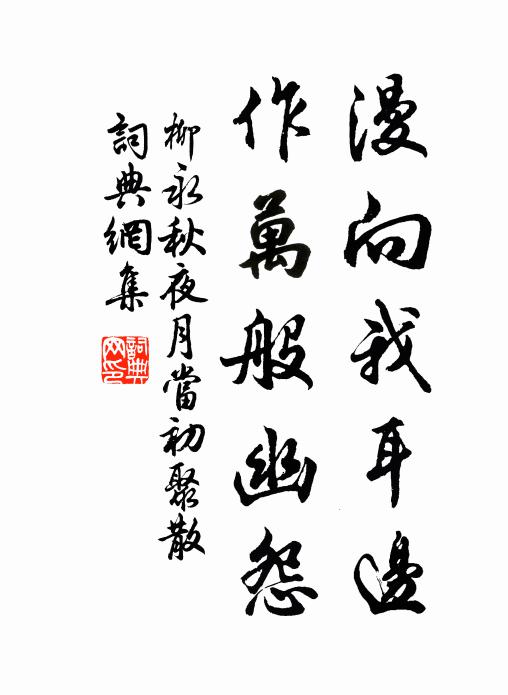 漫向我耳邊
作萬般幽怨
柳永秋夜月當初聚散
詞典網集
詞典網印